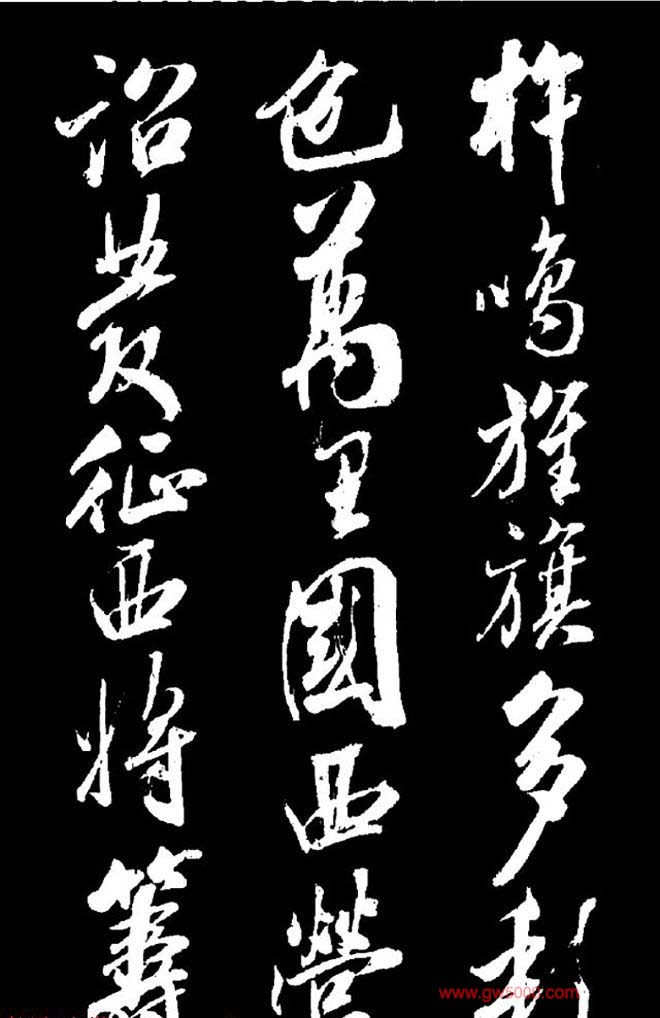 鳴旌旗多
色萬里國西營
詔發征西將籌
www.gw5000.com